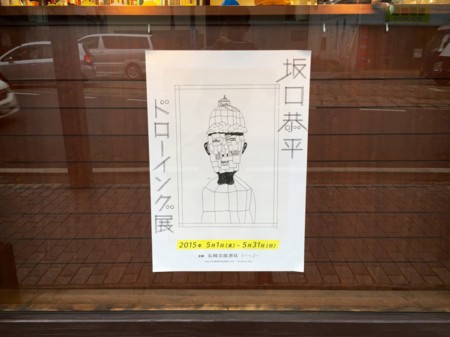 坂口恭平
ドローイング展
2015年 5月1日(金)~5月31日(日)